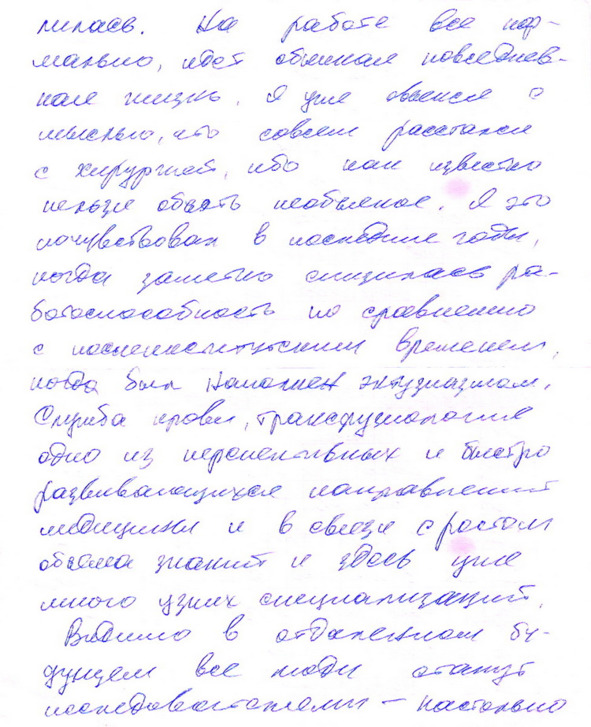 лилась. На работе все нор-
мально, идет обычная повседнев-
ная жизнь. Я уже свыкся с
мыслью, что совсем расстался
с хирургией, ибо как известно
нельзя объять необъятное. Я это
почувствовал в последние годы,
когда заметно снизилась ра-
ботоспособность по сравнению
с послеинститутским временем,
когда был наполнен энтузиазмом.
Служба крови, трансфузиология
одно из перспективных и быстро
развивающихся направлений
медицины и в связи с ростом
объема знаний и здесь уже
много узких специализаций.
Видимо в отдаленном бу-
дущем все люди станут
исследователями – настолько